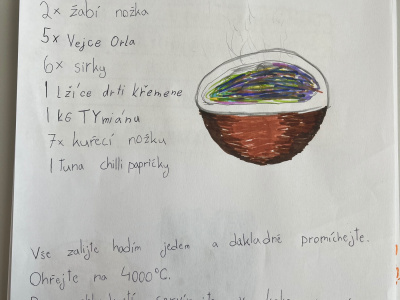 2x žabí nožka
5x Vejce Orla
6x sirky
1 Lžíce drti křemene
1 kG TYmiánu
7x kuřecí nožku
1 Tuna chilli papričky
Vse zalijte hadím jedem a dakladně promíchejte.
Ohřejte na 4000°C.